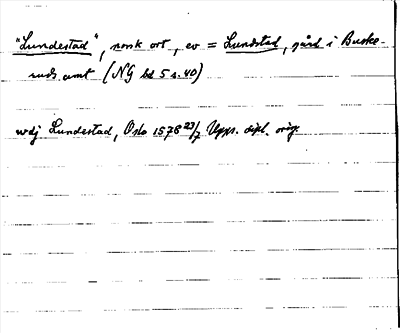 "Lundestad", norsk ort, ev = Lundstad, gård i Buske-
ruds amt (NG bd 5 s. 40)
wdj Lundestad, Oslo 1578 23/7 Upps. dipl. orig.